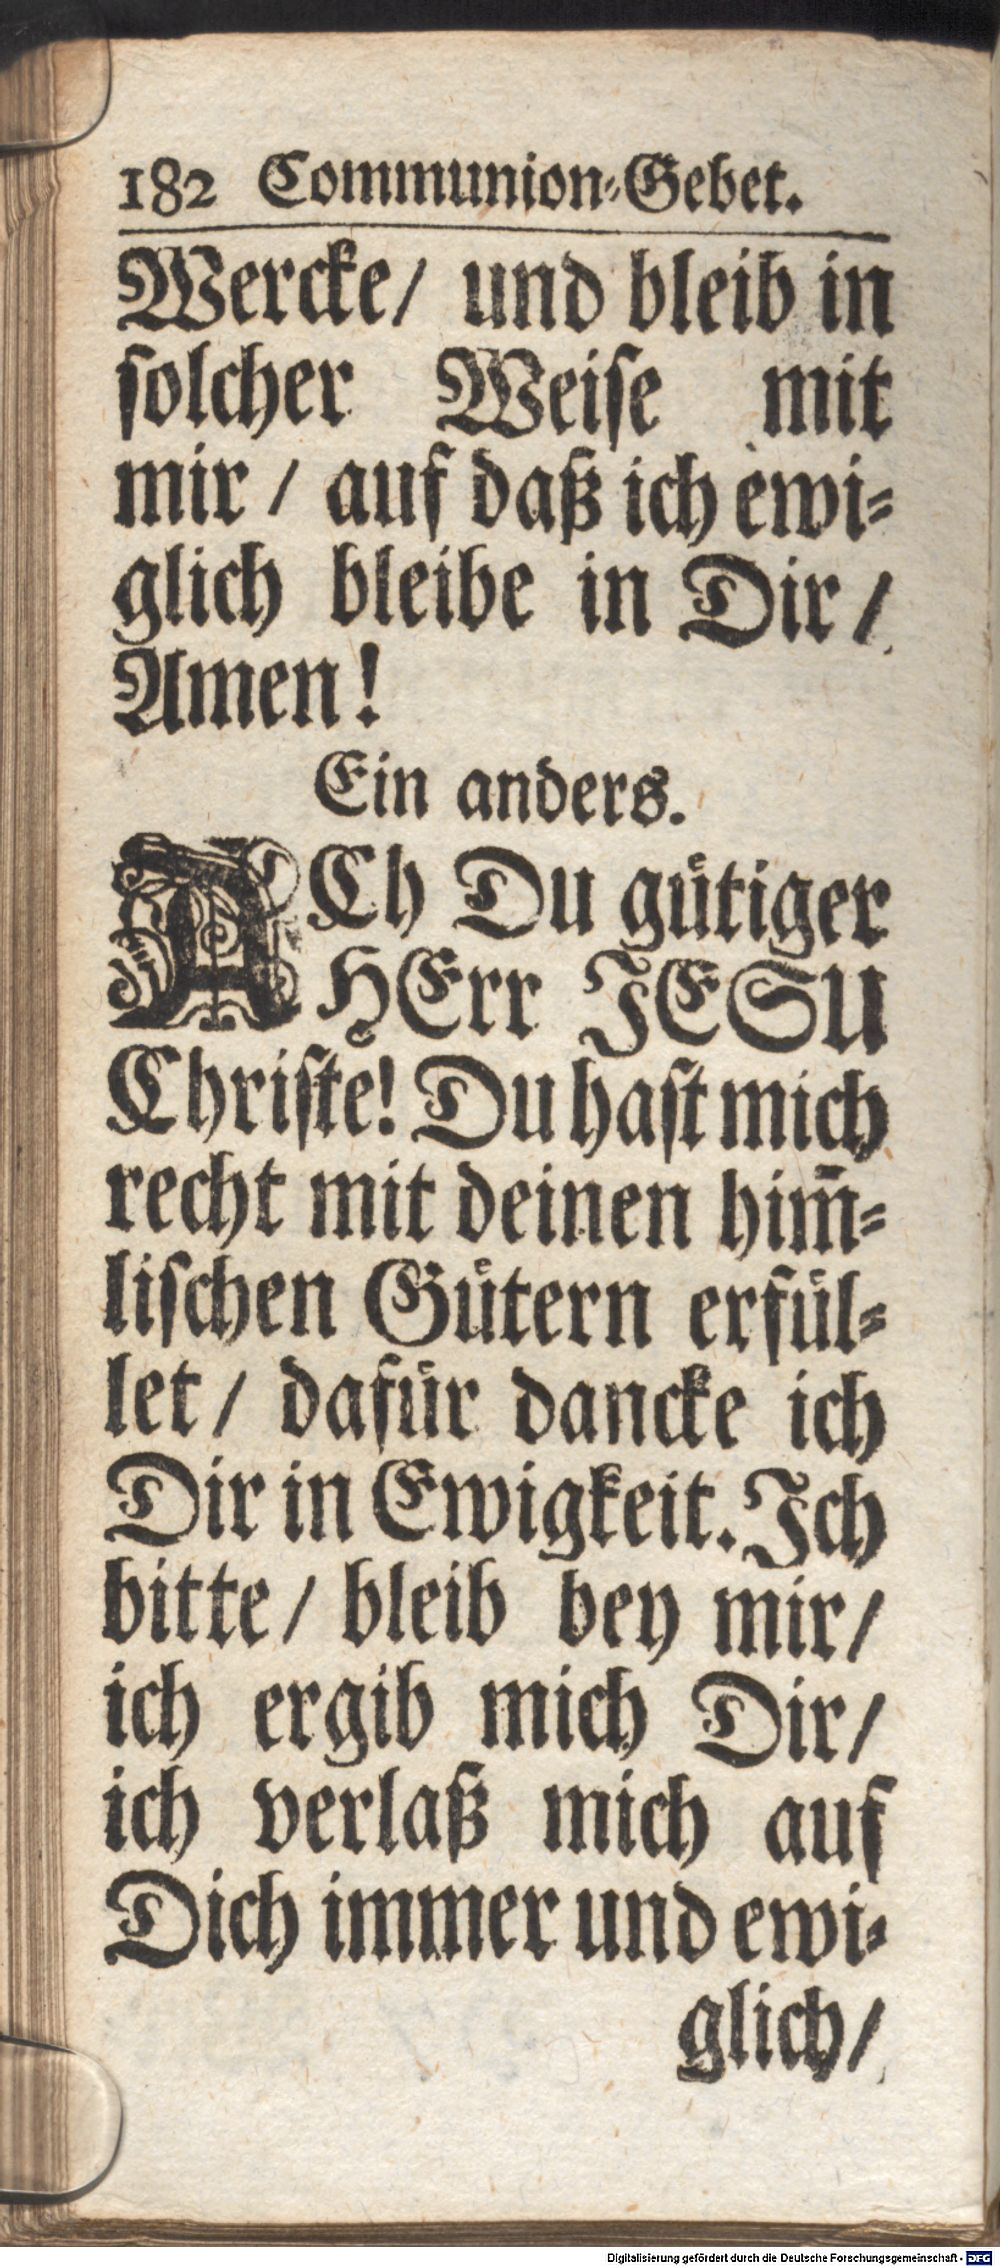 182 Communion-Gebet.
Wercke/ und bleib in
solcher Weise mit
mir / auf daß ich ewi-
glich bleibe in Dir /
Amen!
Ein anders.
ACh Du guͤtiger
HErr JESU
Christe! Du hast mich
recht mit deinen him̄-
lischen Guͤtern erfuͤl-
let / dafuͤr dancke ich
Dir in Ewigkeit. Ich
bitte / bleib bey mir/
ich ergib mich Dir/
ich verlaß mich auf
Dich immer und ewi-
glich/
Digitalisierung gefördert durch die Deutsche Forschungsgemeinschaft - DFG